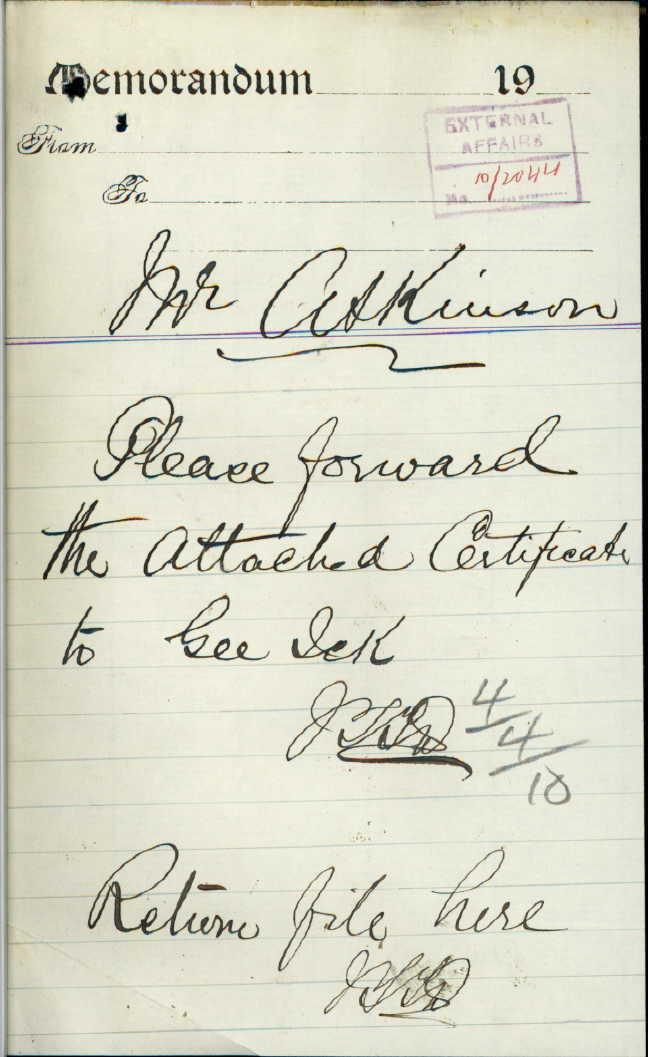 Memorandum 19
From
To
EXTERNAL
AFFAIRS
No. 10/2044
Mr Atkinson
Please forward
the Attached Certificate
to Gee Ick
4/4/10
Return file here